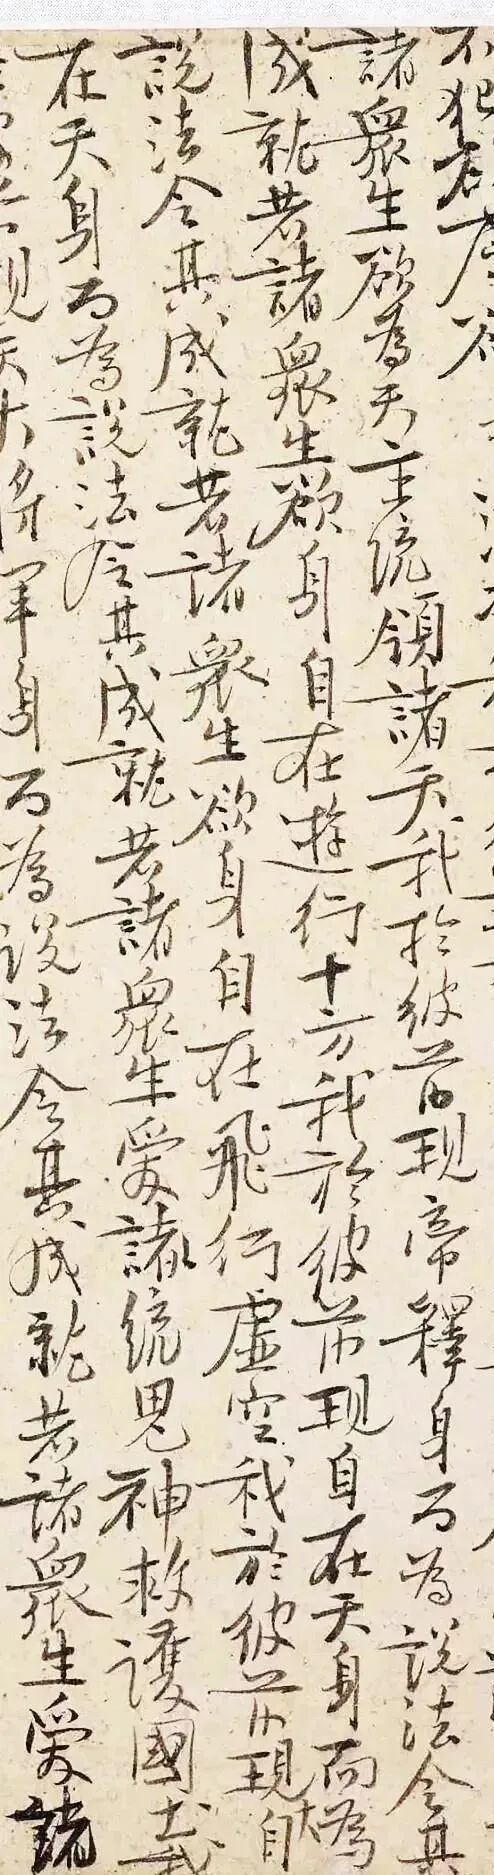 不犯欲塵欲
諸眾生欲為天主統領諸天我於彼前現帝釋身而為說法令其
成就若諸眾生欲身自在遊行十方我於彼前現自在天身而為
說法令其成就若諸眾生欲身自在飛行虛空我於彼前現大自
在天身而為說法令其成就若諸眾生愛諸統鬼神救護國土我
前現天大將軍身而為說法令其成就若諸眾生愛諸